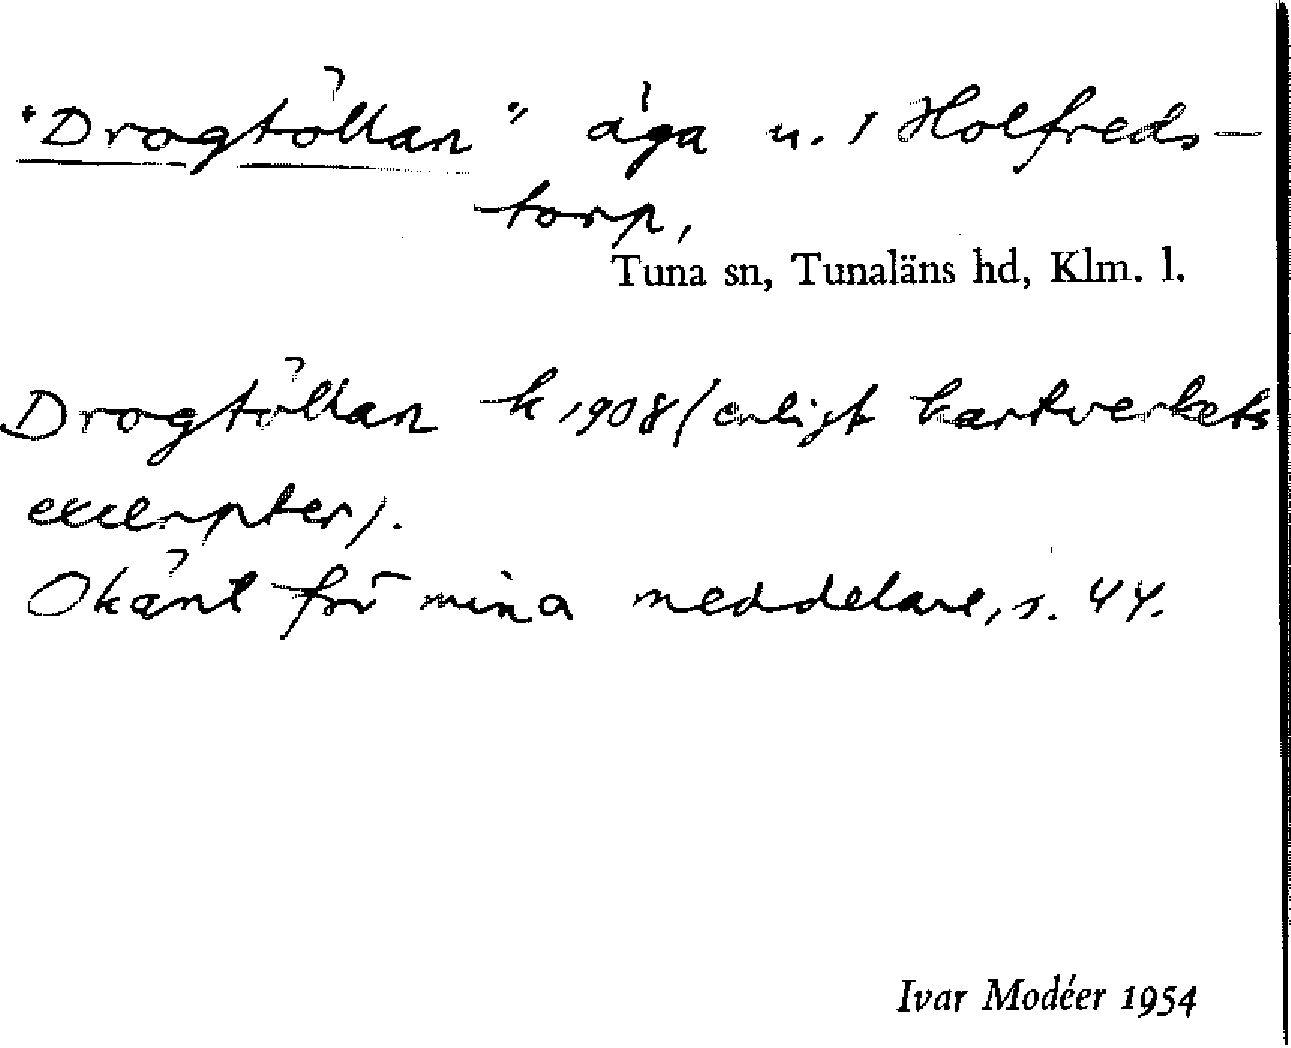 "Drogtöllan" äga u. 1 Holfreds-
torp,
Tuna sn, Tunaläns hd, Klm. l.
Drogtöllan k 1908 (enligt kartverkets
excerpter).
Okänt för mina meddelare, s. 44.
Ivar Modéer 1954